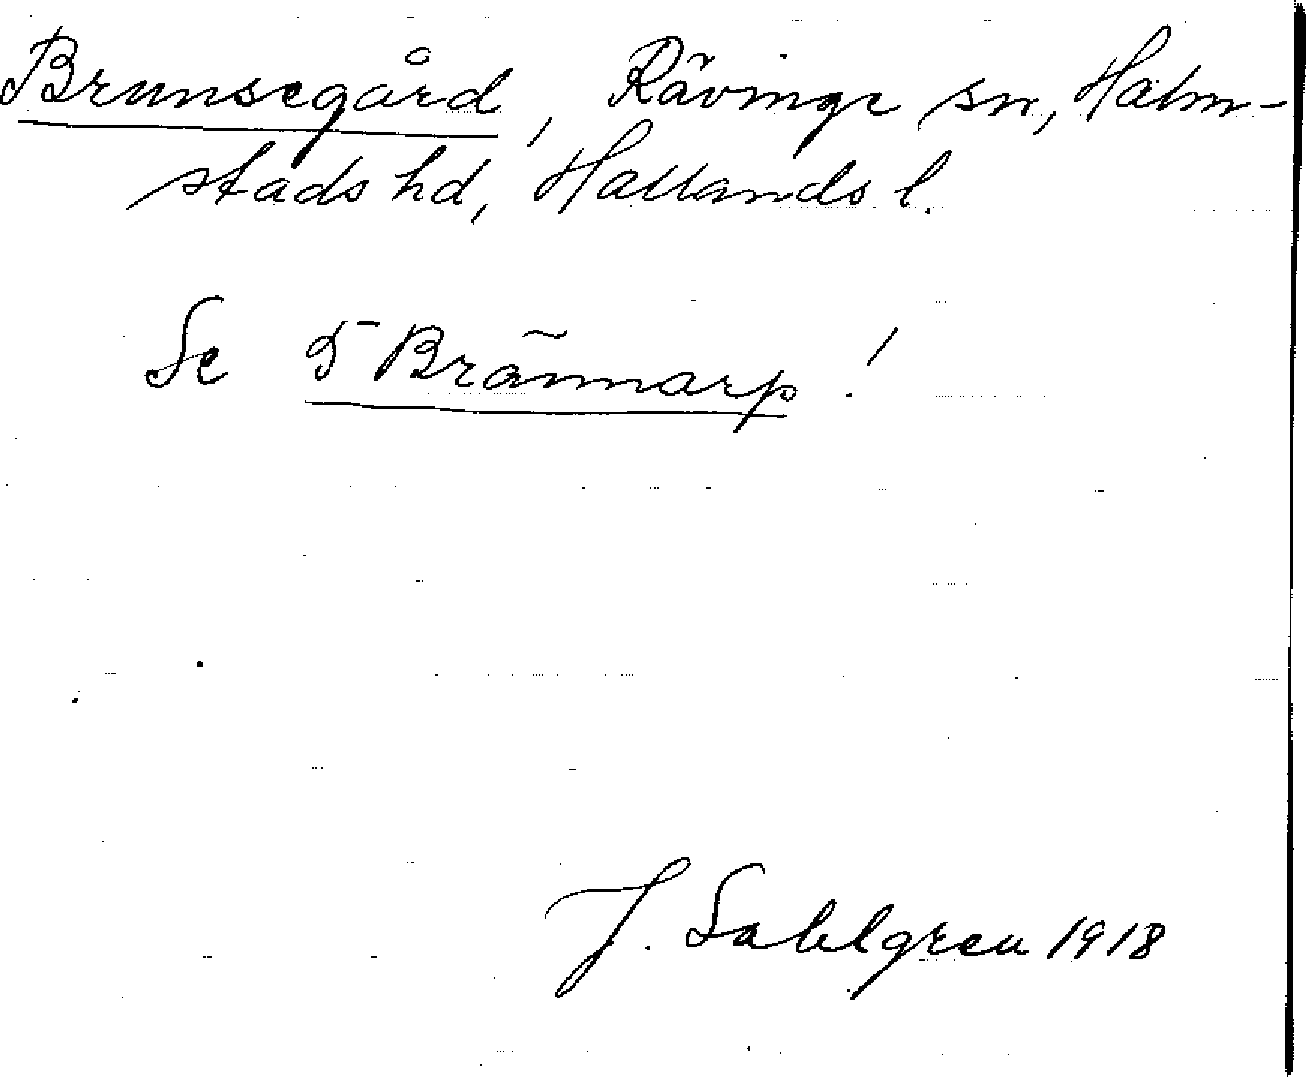 Brunsegård, Rävinge sn, Halm-
stads hd, Hallands l.
Se 5 Brännarp!
J. Sahlgren 1918